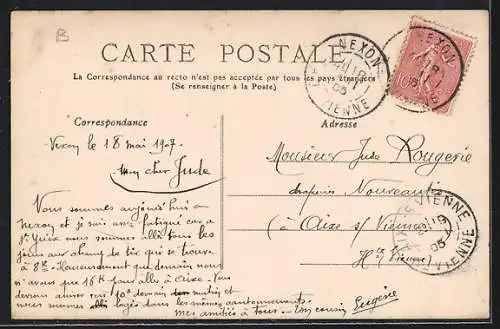 B
CARTE POSTALE
La Correspondance au recto n'est pas acceptée par tous les pays étrangers
(Se renseigner à la Poste)
NEXON
VIENNE
NEXON
10
Correspondance
Adresse
Nexon le 18 mai 1907
Mon cher Jude
Monsieur Jude Rougerie
draperies Nouveautés
(à Aixe s/ Vienne)
Hte Vienne
VIENNE
VIENNE
Nous sommes aujourd'hui à
Nexon et je suis assez fatigué car à
St Yrieix nous sommes allés tous les
jours aux champ de tir qui se trouve
à 8 K. Heureusement que demain nous
n'avons que 16 K pour aller à Aixe. Nous
devons arriver vers 10h demain matin et
nous sommes logés dans les mêmes cantonnements.
Mes amitiés à tous. Ton cousin Eugène